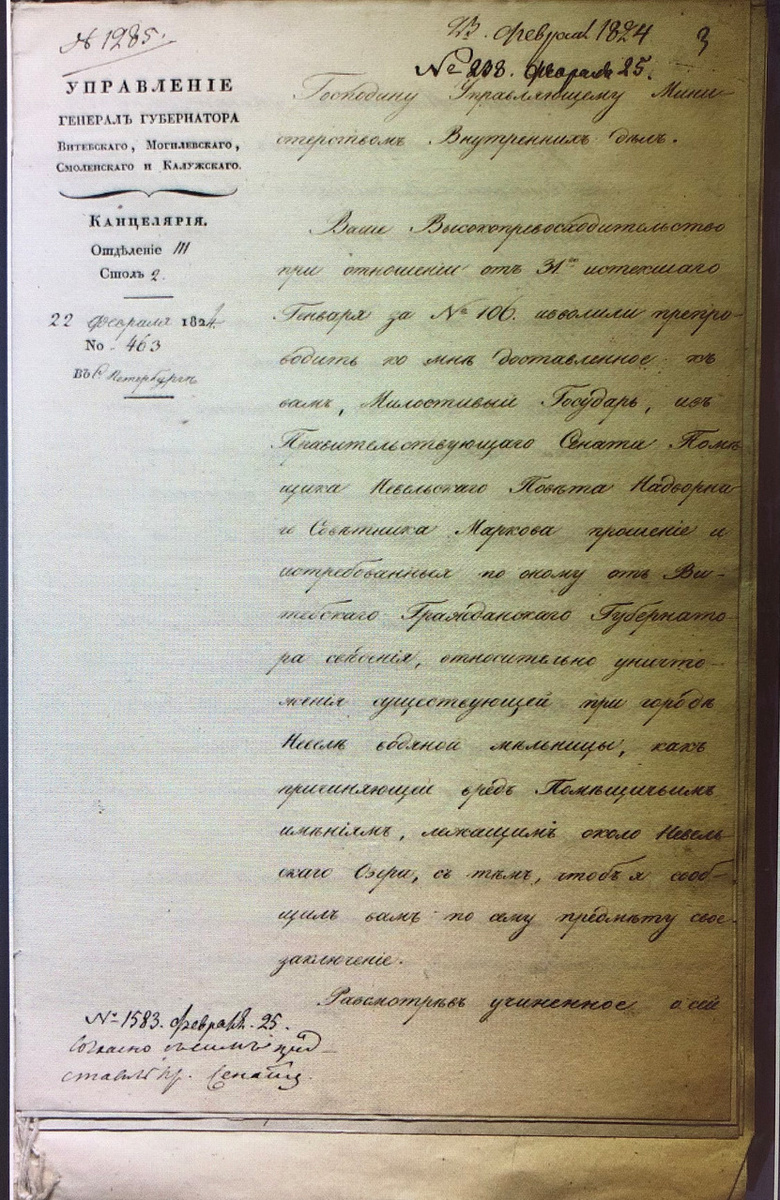 № 1285.
23. февраля 1824
3
№ 208. февраля 25.
УПРАВЛЕНІЕ
ГЕНЕРАЛЪ ГУБЕРНАТОРА
Витебскаго, Могилевскаго,
Смоленскаго и Калужскаго.
Канцелярія.
Отдѣленіе III
Столъ 2.
22 февраля 1824.
No 463
Въ С. Петербургѣ
Господину Управляющему Мини-
стерствомъ Внутреннихъ дѣлъ.
Ваше Высокопревосходительство
при отношеніи отъ 31го истекшаго
Генваря за № 106. изволили препро-
водить ко мнѣ доставленное къ
вамъ, Милостивый Государь, изъ
Правительствующаго Сената Помѣ-
щика Невельскаго Повѣта Надворна-
го Совѣтника Маркова прошеніе и
истребованныя по оному отъ Ви-
тебскаго Гражданскаго Губернато-
ра свѣденія, относительно уничто-
женія существующей при городѣ
Невелѣ водяной мѣльницы, какъ
причиняющей вредъ Помѣщичьимъ
имѣніямъ, лежащимъ около Невель-
скаго Озера, съ тѣмъ, чтобъ я сооб-
щилъ вамъ по сему предмѣту свое
заключеніе.
Разсмотрѣвъ учиненное о сей
№ 1583. февраля. 25.
Согласно съ симъ пред-
ставл. пр. Сенату.